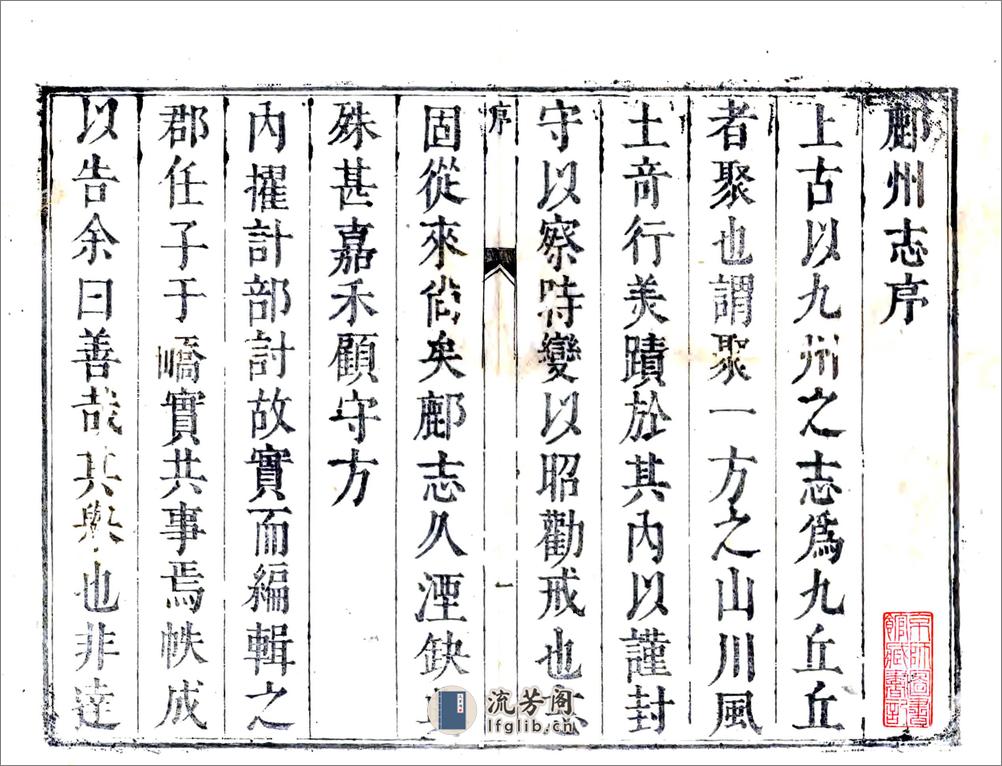 鄜州志序
上古以九州之志爲九丘丘
者聚也謂聚一方之山川風
土竒行美蹟於其內以謹封
守以察時變以昭勸戒也
序
一
固從來尙矣鄜志久湮缺
殊甚嘉禾顧守方
內擢計部討故實而編輯之
郡任子于嶠實共事焉帙成
以告余曰善哉其舉也非達
京師圖書
館藏書記
流芳阁
lfglib.cn